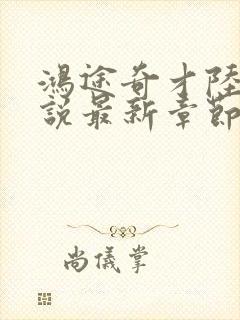 鴻途奇才陸
說最新章節
尚儀掌